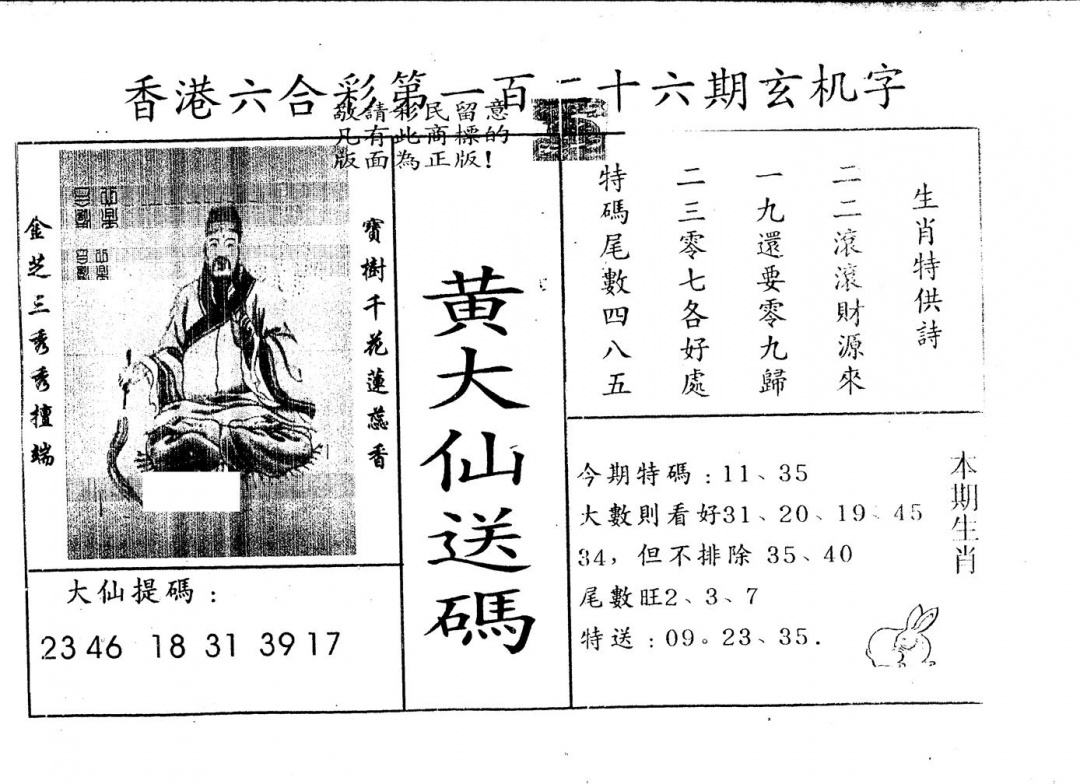 香港六合彩第一百二十六期玄机字
敬請彩民留意
凡有此商標的
版面為正版!
寶樹千花蓮蕊香
金芝三秀秀擅端
黄大仙送碼
大仙提碼：
23 46 18 31 39 17
生肖特供詩
二二滾滾財源來
一九還要零九歸
二三零七各好處
特碼尾數四八五
本期生肖
今期特碼：11、35
大數則看好31、20、19、45
34，但不排除 35、40
尾數旺2、3、7
特送：09。23、35.